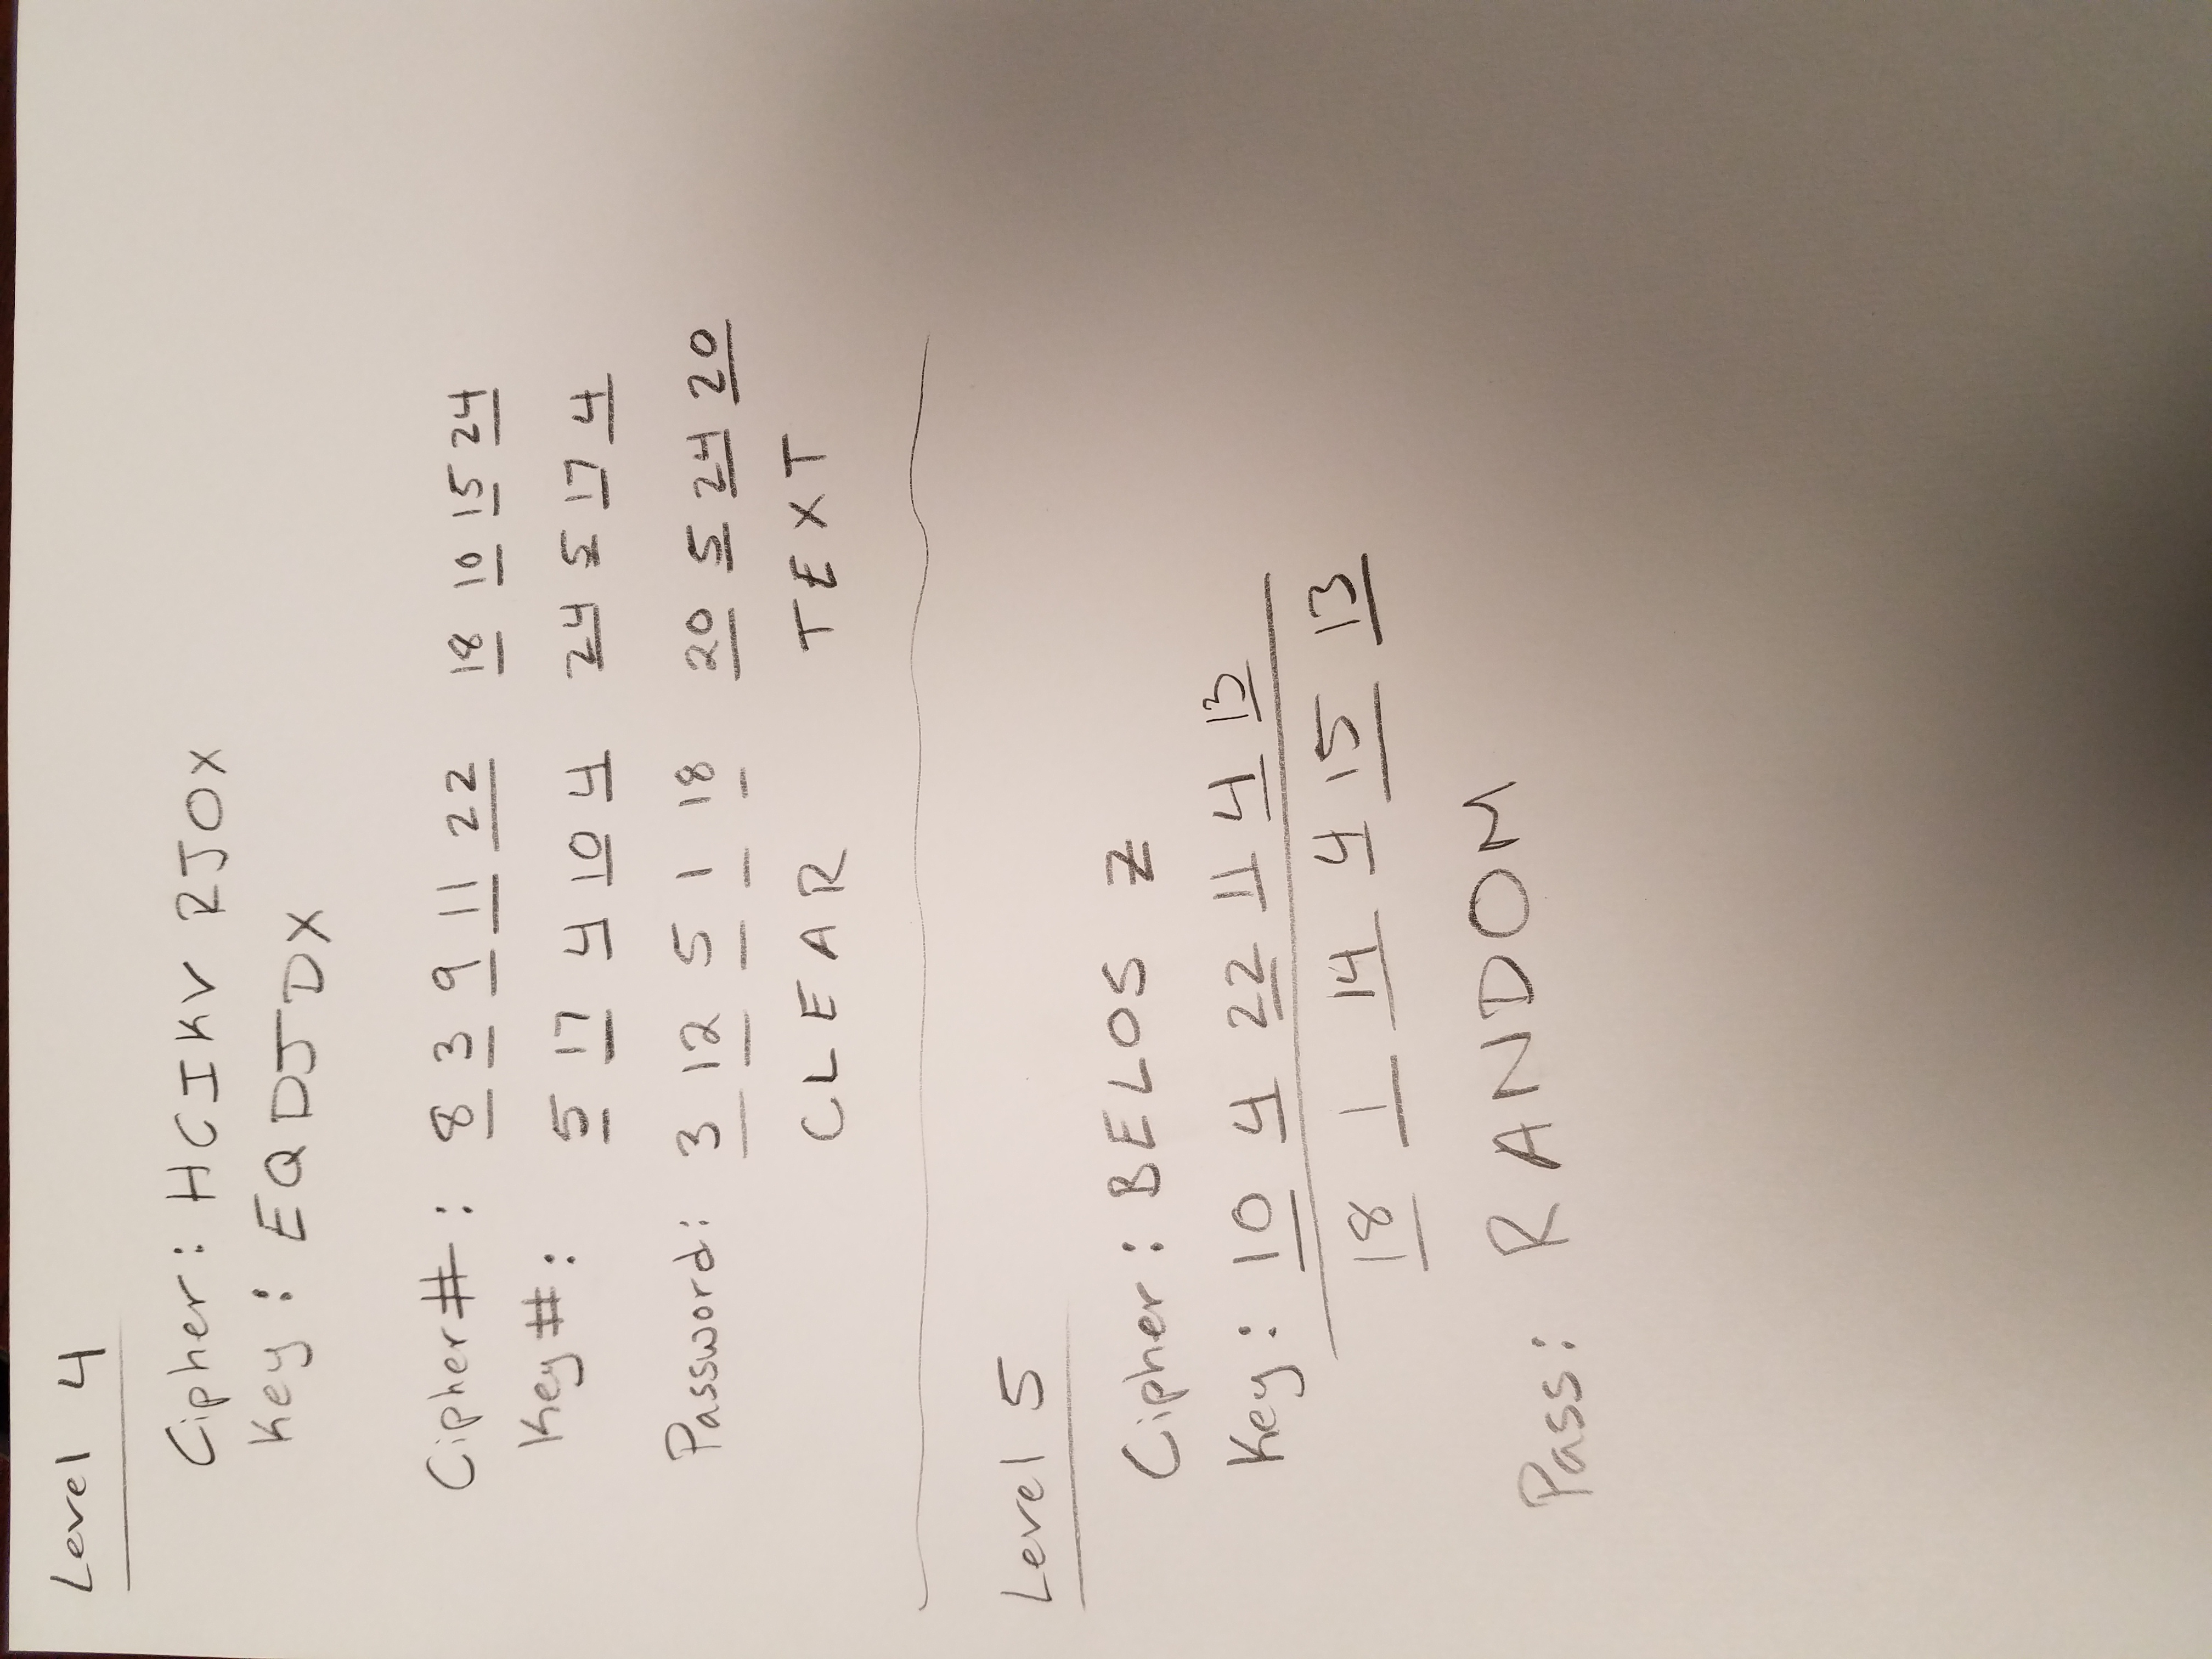 Level 4
Cipher: HCIKV RJOX
Key: EQDJDX
Cipher#: 8 3 9 11 22 18 10 15 24
Key#: 5 17 4 10 4 24 5 17 4
Password: 3 12 5 1 18 20 5 24 20
CLEAR TEXT
Level 5
Cipher: BELOS Z
Key: 10 4 22 11 4 13
18 1 14 4 15 13
Pass: RANDOM